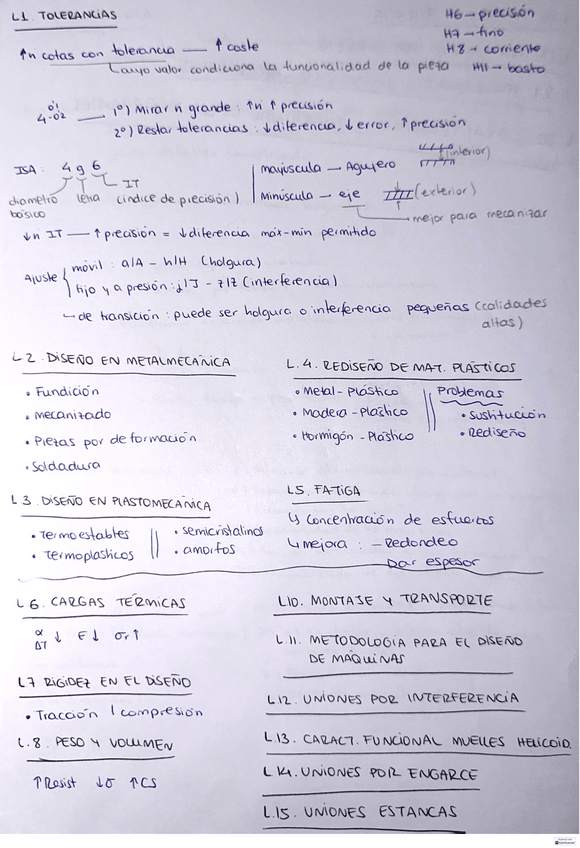 L1. TOLERANCIAS
H6 → precisión
H7 → fino
H8 → corriente
H11 → basto
↑n cotas con tolerancia — ↑ coste
cuyo valor condiciona la funcionalidad de la pieza
4 0'1 -0'2 — 1º) Mirar n grande: ↑n ↑ precisión
2º) Restar tolerancias: ↓diferencia, ↓ error, ↑ precisión
ISA: 4 g 6
diametro básico
letra
IT (índice de precisión)
mayúscula — Agujero (interior)
Minúscula — eje (exterior)
→ mejor para mecanizar
↓n IT — ↑ precisión = ↓ diferencia máx-min permitido
Ajuste
móvil: a/A - h/H (holgura)
fijo y a presión: j/J - z/Z (interferencia)
→ de transición: puede ser holgura o interferencia pequeñas (calidades altas)
L2. DISEÑO EN METALMECÁNICA
• Fundición
• Mecanizado
• Piezas por deformación
• Soldadura
L.4. REDISEÑO DE MAT. PLÁSTICOS
• Metal - Plástico
• Madera - Plástico
• Hormigón - Plástico
Problemas
• Sustitución
• Rediseño
L3. DISEÑO EN PLASTOMECÁNICA
• Termoestables
• Termoplasticos
• Semicristalinos
• amorfos
L5. FATIGA
↳ Concentración de esfuerzos
↳ mejora: - Redondeo
Dar espesor
L6. CARGAS TÉRMICAS
α ΔT ↓ E↓ σr↑
L7 RIGIDEZ EN EL DISEÑO
• Tracción / compresión
L.8. PESO Y VOLUMEN
↑Resist ↓σ ↑CS
L10. MONTAJE Y TRANSPORTE
L11. METODOLOGIA PARA EL DISEÑO
DE MAQUINAS
L12. UNIONES POR INTERFERENCIA
L13. CARACT. FUNCIONAL MUELLES HELICOID.
L14. UNIONES POR ENGARCE
L15. UNIONES ESTANCAS